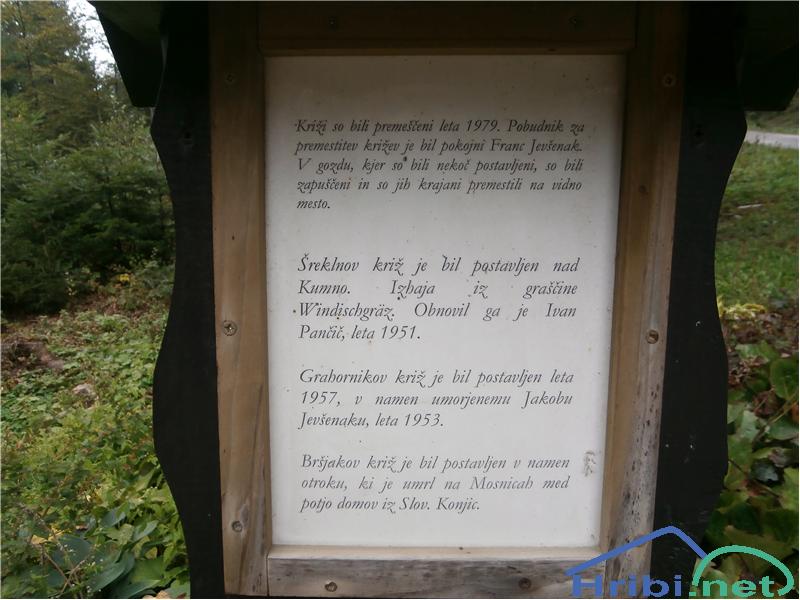 Križi so bili premeščeni leta 1979. Pobudnik za
premestitev križev je bil pokojni Franc Jevšenak.
V gozdu, kjer so bili nekoč postavljeni, so bili
zapuščeni in so jih krajani premestili na vidno
mesto.
Šreklnov križ je bil postavljen nad
Kumno. Izhaja iz graščine
Windischgräz. Obnovil ga je Ivan
Pančič, leta 1951.
Grahornikov križ je bil postavljen leta
1957, v namen umorjenemu Jakobu
Jevšenaku, leta 1953.
Bršjakov križ je bil postavljen v namen
otroku, ki je umrl na Mosnicah med
potjo domov iz Slov. Konjic.
Hribi.net